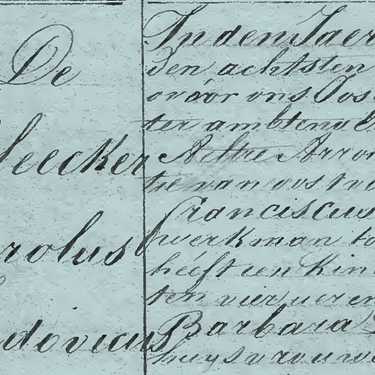 De
leecker
rolus
dovicus
In den Jaer
den achtsten
voor ons Pos
ter ambtena
Aeltre Arron
tie van oost v
Franciscus
werkman to
heeft een kin
ten vier uren
Barbara
huysvrouwe